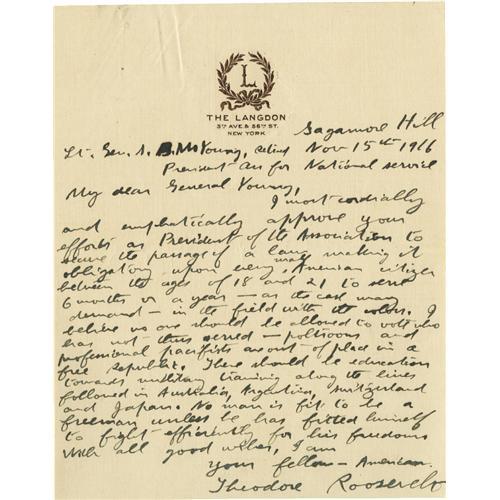 L
THE LANGDON
5TH AVE & 56TH ST.
NEW YORK
Sagamore Hill
Lt. Gen. S. B. M. Young, retired Nov 15th 1916
President Ass for National service
My dear General Young,
I most cordially
and emphatically approve your
efforts as President of the Association to
secure the passage of a law making it
obligatory upon every male American citizen
between the ages of 18 and 21 to serve
6 months or a year — as the case may
demand — in the field with the colors. I
believe no one should be allowed to vote who
has not thus served — and
professional pacifists are out of place in a
free Republic. There should be education
towards military training along the lines
followed in Australia, Argentina, Switzerland
and Japan. No man is fit to be a
freeman unless he has fitted himself
to fight efficiently for his freedom.
With all good wishes, I am
your fellow-American
Theodore Roosevelt